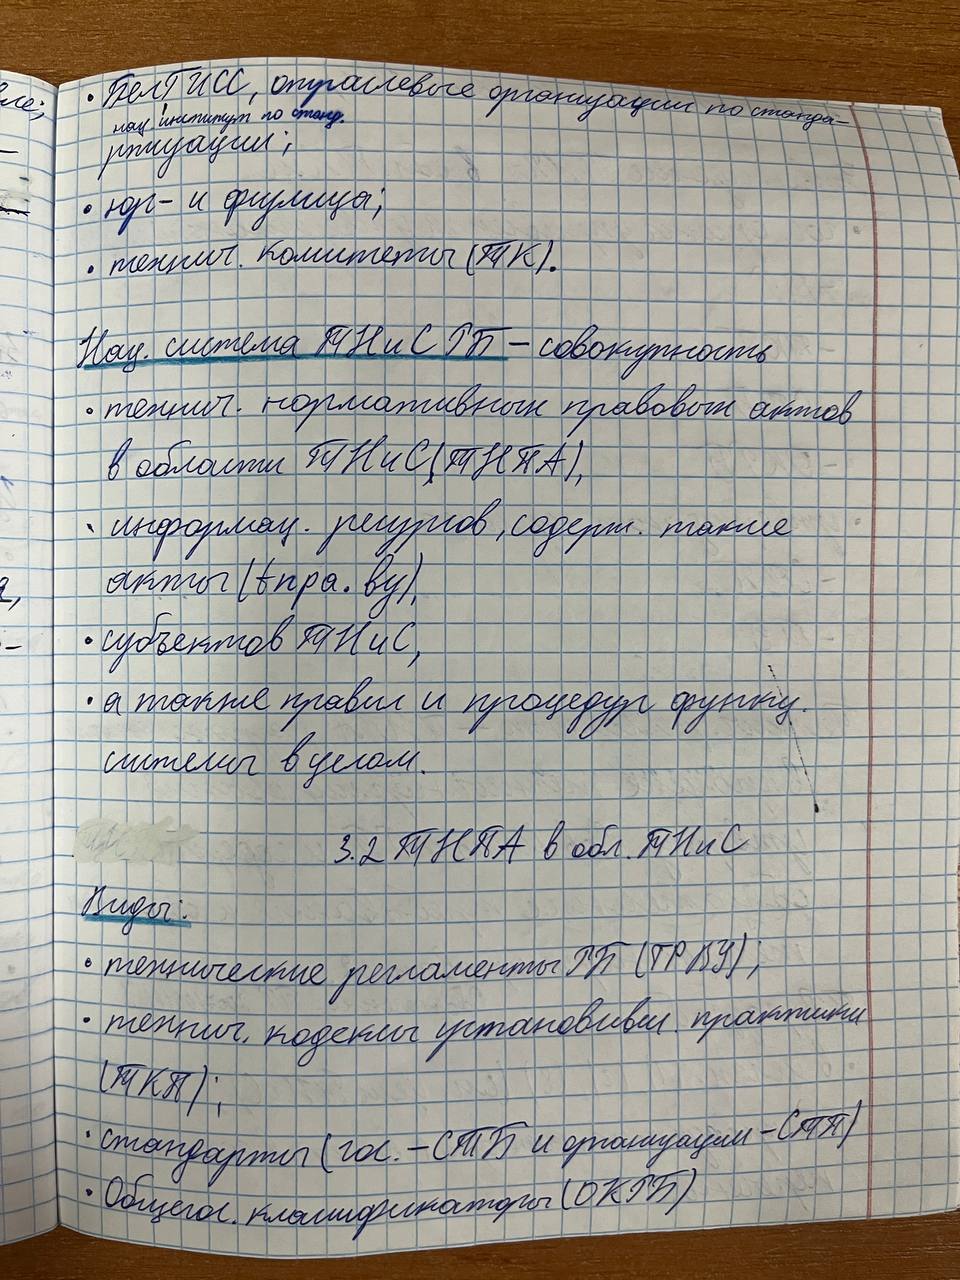 • БелГИСС, отраслевые организации по станда-
нац. институт по станд.
ртизации;
• юр- и физлица;
• технич. комитеты (ТК).
Нац. система ТНиС РБ – совокупность
• технич. нормативных правовых актов
в области ТНиС (ТНПА),
• информац. ресурсов, содерж. такие
акты (tnpa.by),
• субъектов ТНиС,
• а также правил и процедур функц.
системы в целом.
3.2 ТНПА в обл. ТНиС
Виды:
• технические регламенты РБ (ТР BY);
• технич. кодексы установивш. практики
(ТКП);
• стандарты (гос. – СТБ и организации – СТП)
• Общегос. классификаторы (ОКРБ)